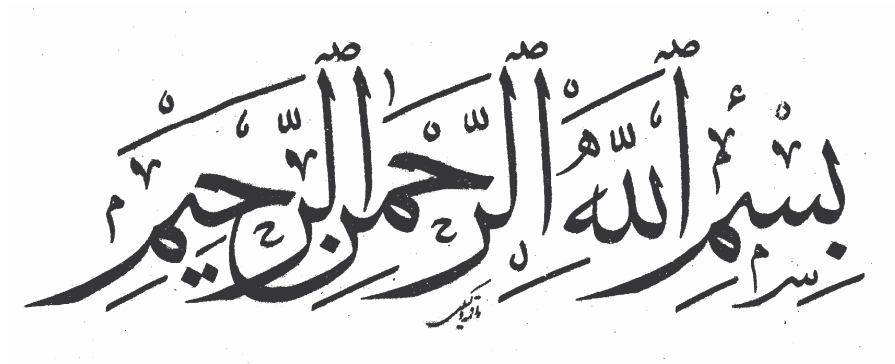 بِسْمِ ٱللَّهِ ٱلرَّحْمٰنِ ٱلرَّحِيمِ